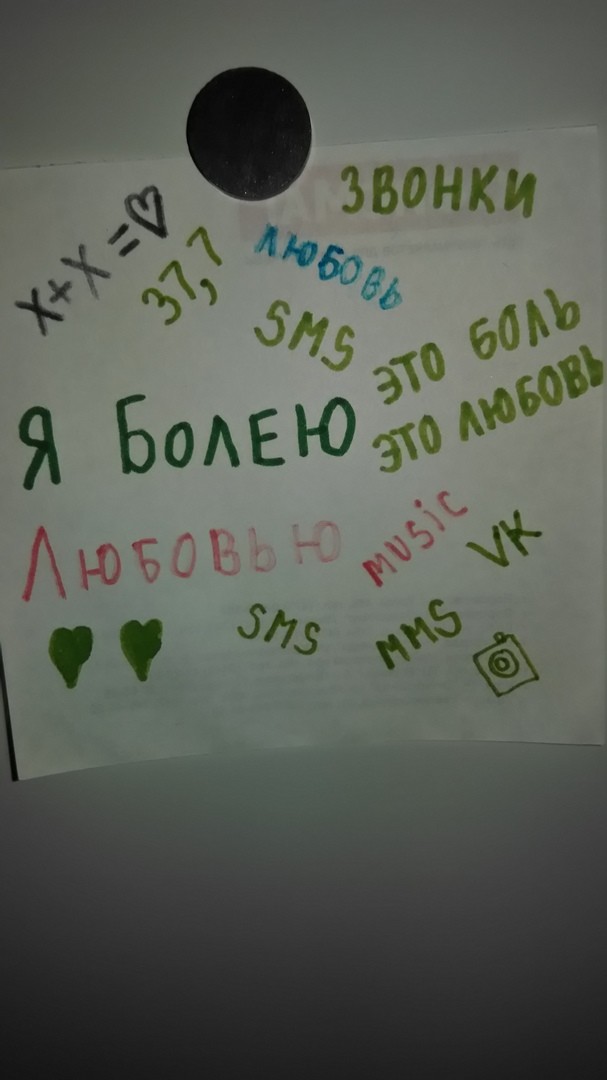 ЗВОНКИ
X+X=♡
37,7
ЛЮБОВЬ
SMS
ЭТО БОЛЬ
ЭТО ЛЮБОВЬ
Я БОЛЕЮ
ЛЮБОВЬЮ
MUSiC
VK
SMS
MMS